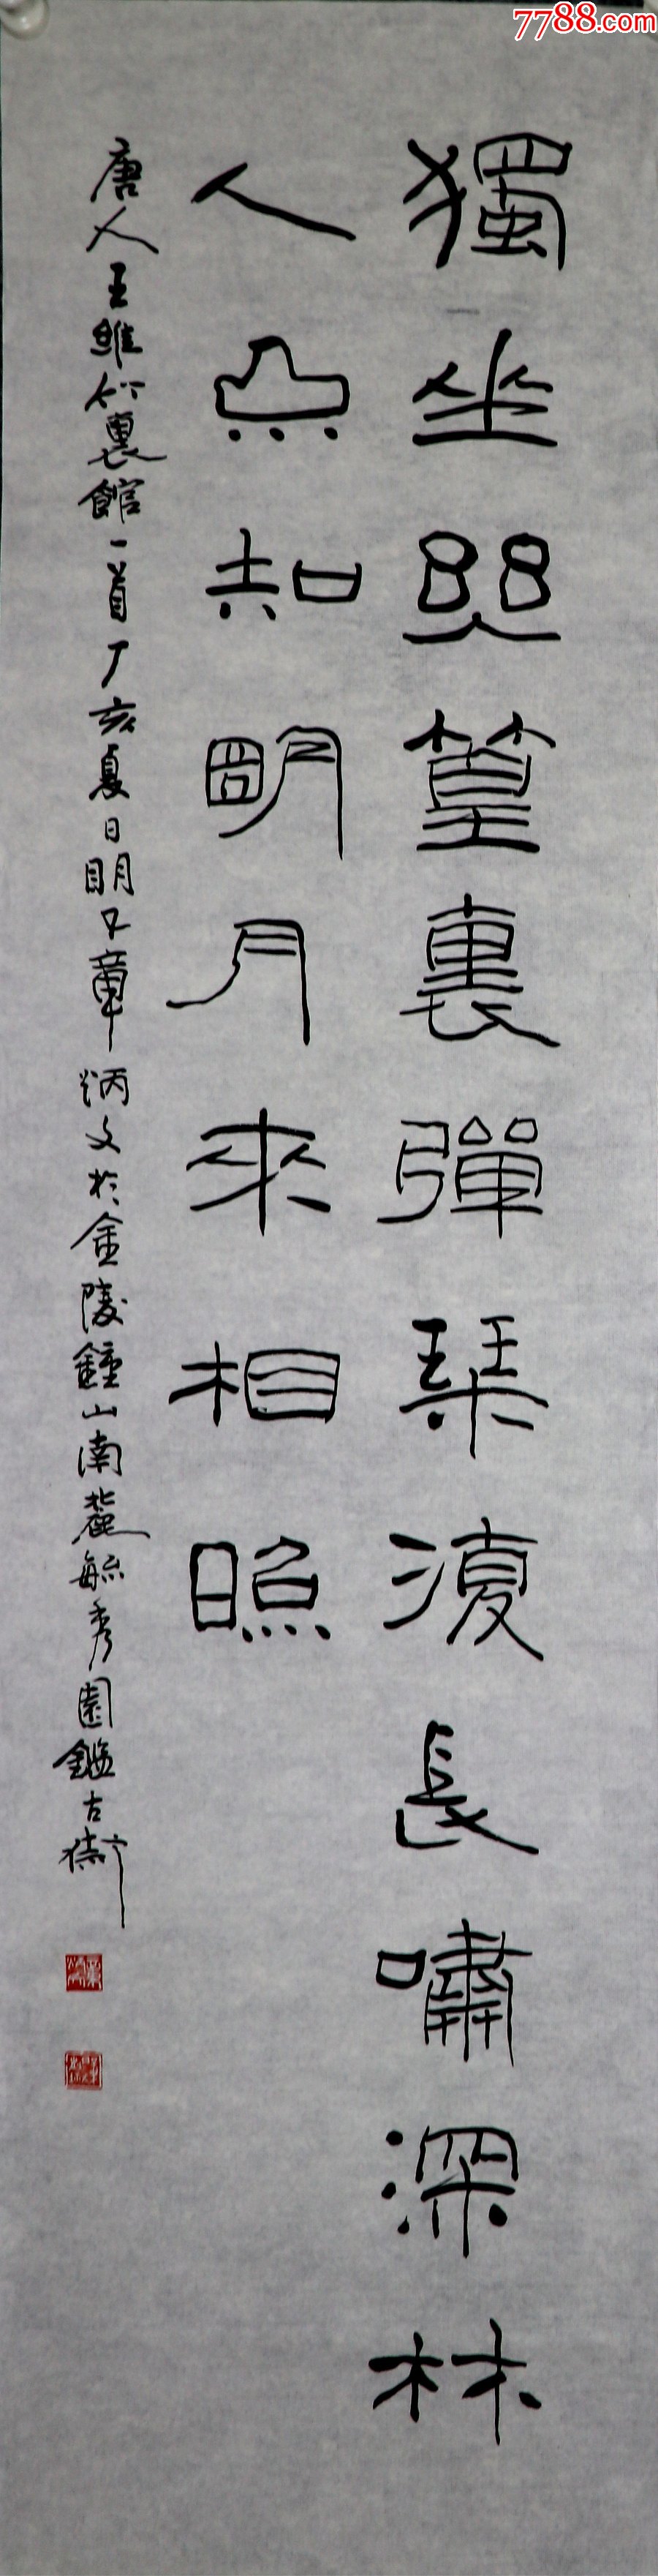 7788.com
獨坐幽篁裏彈琴復長嘯深林
人不知明月來相照
唐人王維竹裏館一首丁亥夏日明不章炳文於金陵鐘山南麓毓秀園鑑古齋